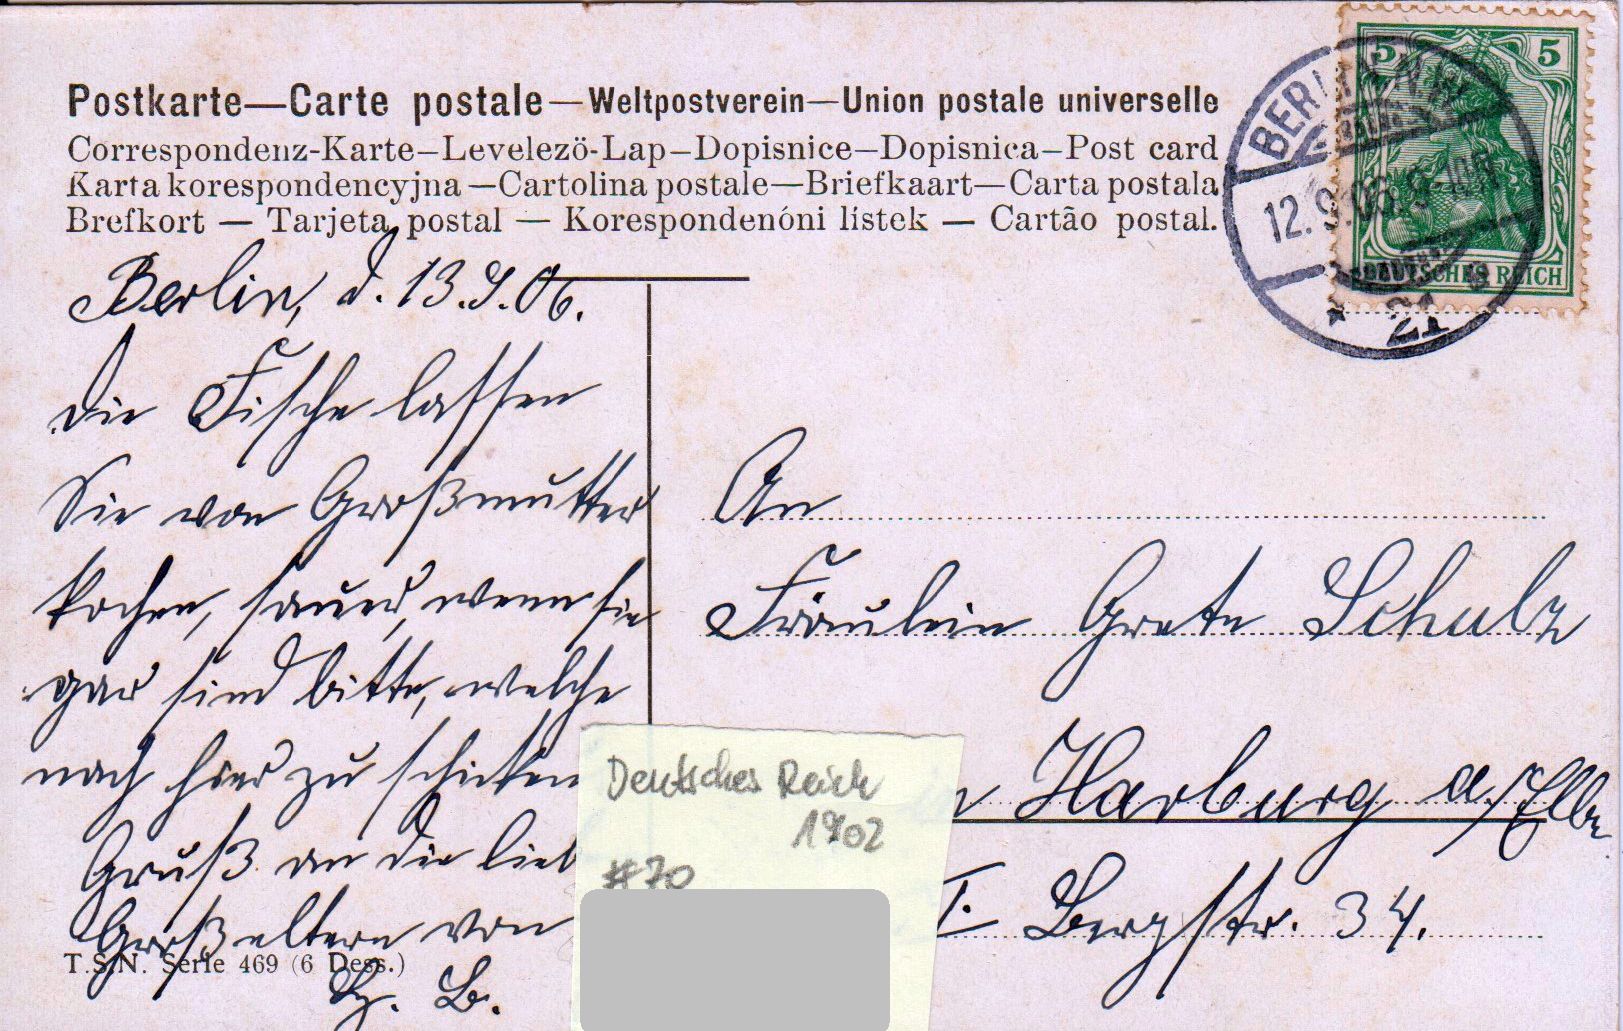 Postkarte—Carte postale—Weltpostverein—Union postale universelle
Correspondenz-Karte—Levelezö-Lap—Dopisnice—Dopisnica—Post card
Karta korespondencyjna—Cartolina postale—Briefkaart—Carta postala
Brefkort — Tarjeta postal — Korespondenóni listek — Cartão postal.
5 5
DEUTSCHES REICH
BERLIN N.W.
12.9.06. 9-10
* 21
Berlin, d. 13.9.06.
Die Fische lassen
Sie von Großmutter
kochen, sauer, wenn sie
gar sind bitte, welche
nach hier zu schicken
Gruß an die lieb
Großeltern von
B.
An
Fräulein Grete Schulz
Harburg a/Elbe
I. Bergstr. 34.
Deutsches Reich
1902
#70
T.S.N. Serie 469 (6 Dess.)